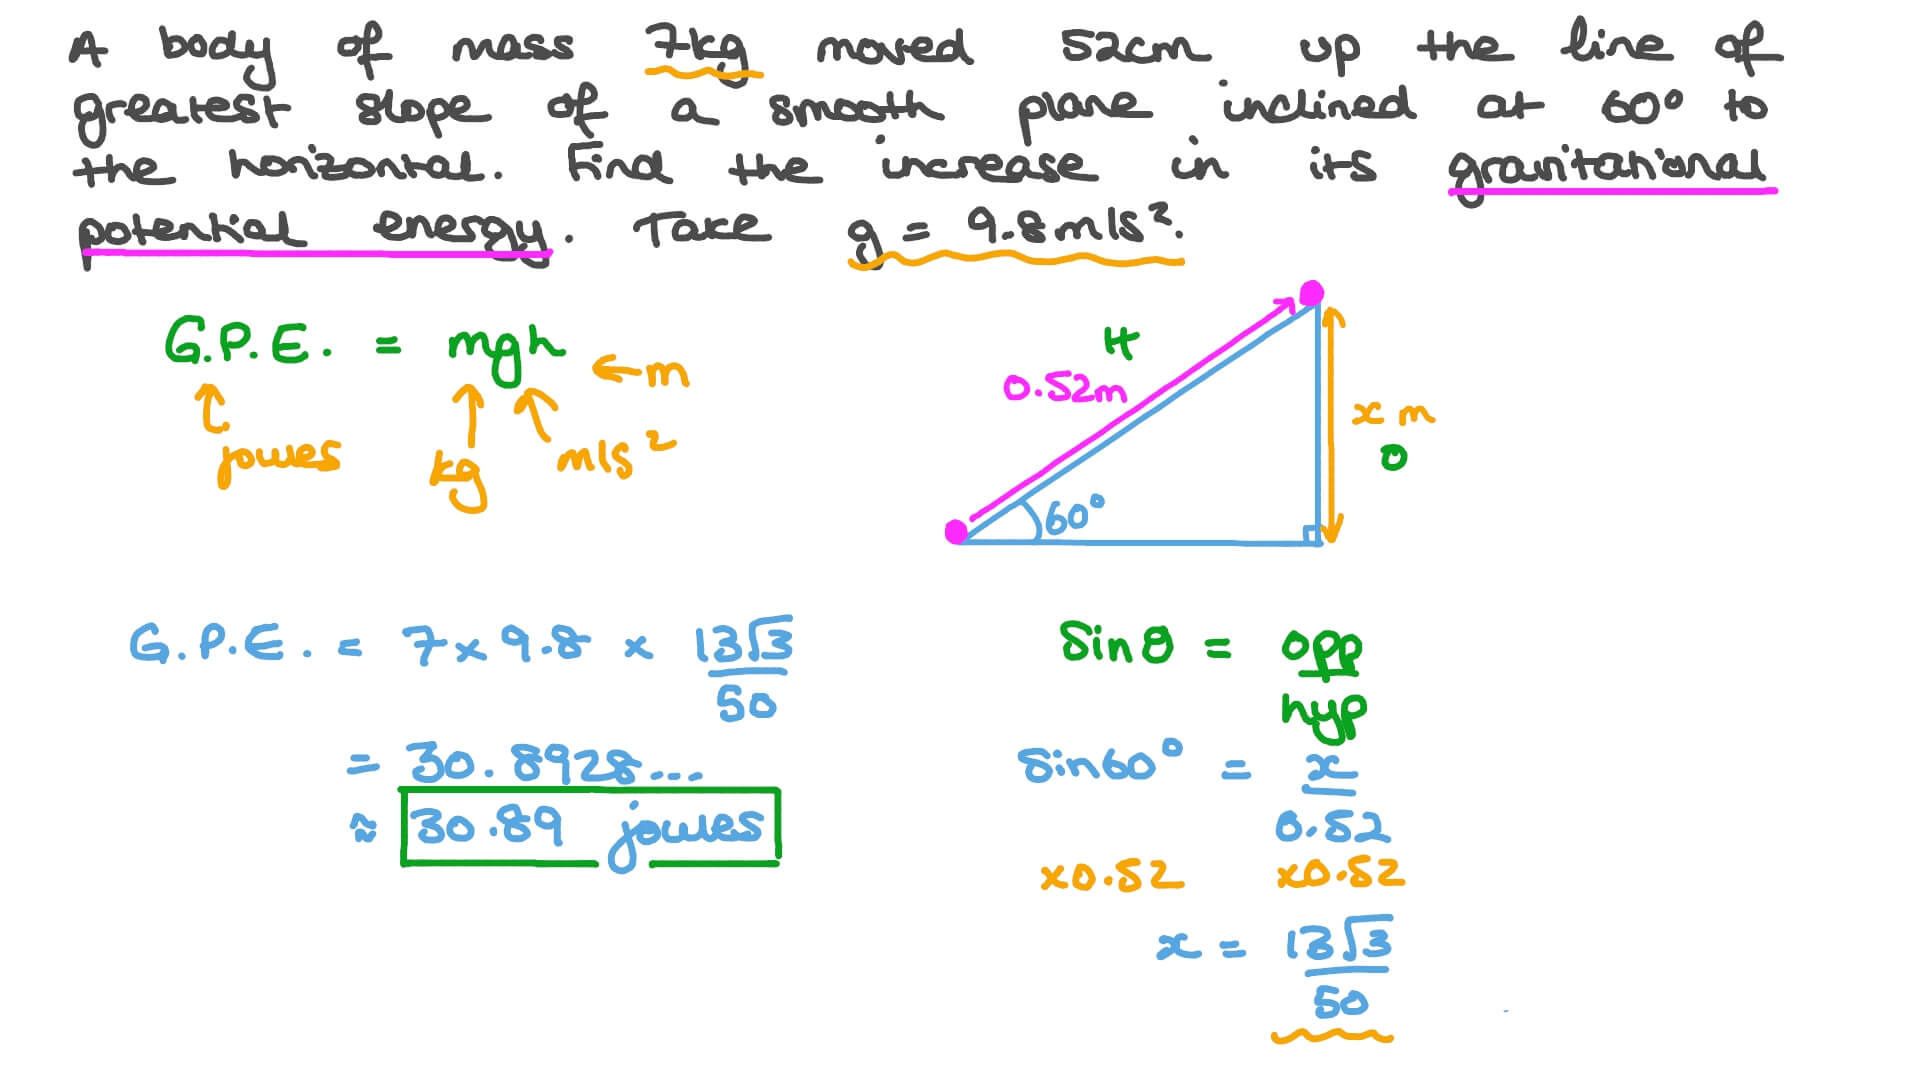 A body of mass 7kg moved 52cm up the line of
greatest slope of a smooth plane inclined at 60° to
the horizontal. Find the increase in its gravitational
potential energy. Take g = 9.8m/s².
G.P.E. = mgh
← m
joules
kg
m/s²
H
0.52m
x m
O
60°
G.P.E. = 7 × 9.8 × 13√3
50
= 30.8928...
≈ 30.89 joules
Sin θ = opp
hyp
Sin60° = x
0.52
×0.52 ×0.52
x = 13√3
50